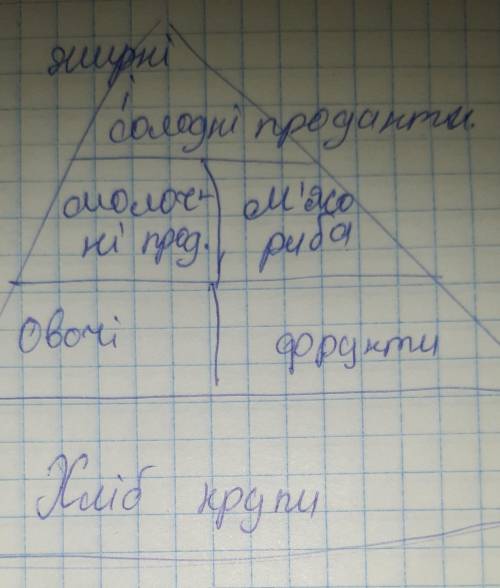 жирні
і
солодкі продукти.
молоч- м'ясо
ні прод. риба
Овочі фрукти
Хліб крупи